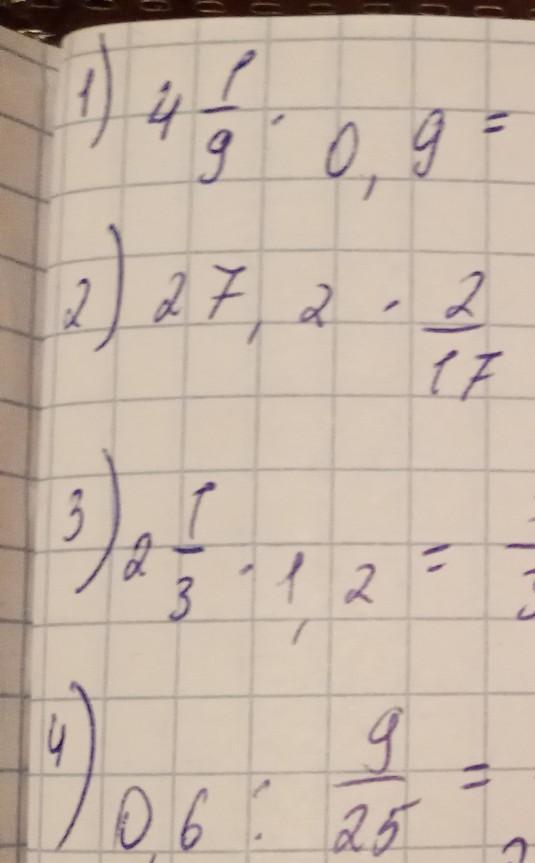 1) 4 1/9 · 0,9 =
2) 27,2 · 2/17
3) 2 1/3 · 1,2 =
4) 0,6 : 9/25 =